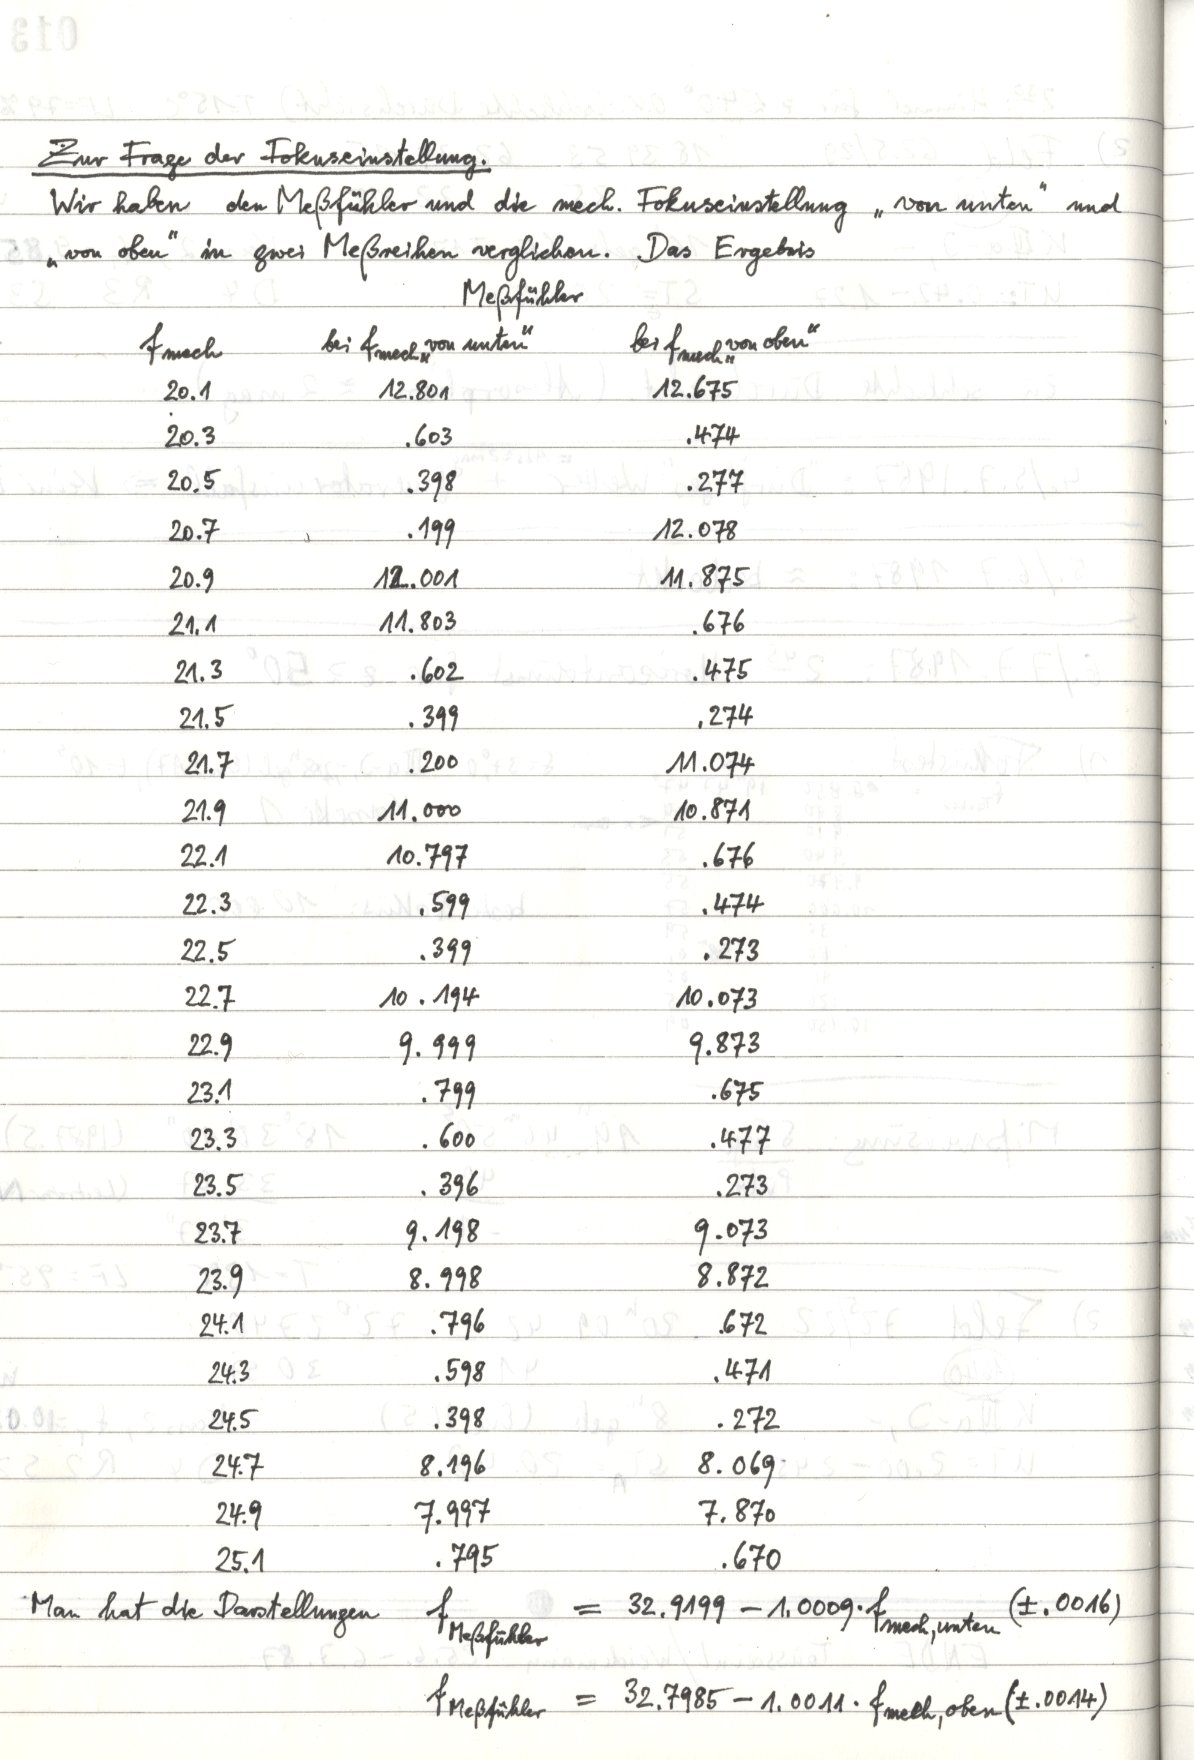 Zur Frage der Fokuseinstellung.
Wir haben den Meßfühler und die mech. Fokuseinstellung „von unten“ und
„von oben“ in zwei Meßreihen verglichen. Das Ergebnis
Meßfühler
f mech bei f mech „von unten“ bei f mech „von oben“
20.1 12.801 12.675
20.3 .603 .474
20.5 .398 .277
20.7 .199 12.078
20.9 12.001 11.875
21.1 11.803 .676
21.3 .602 .475
21.5 .399 .274
21.7 .200 11.074
21.9 11.000 10.871
22.1 10.797 .676
22.3 .599 .474
22.5 .399 .273
22.7 10.194 10.073
22.9 9.999 9.873
23.1 .799 .675
23.3 .600 .477
23.5 .396 .273
23.7 9.198 9.073
23.9 8.998 8.872
24.1 .796 .672
24.3 .598 .471
24.5 .398 .272
24.7 8.196 8.069
24.9 7.997 7.870
25.1 .795 .670
Man hat die Darstellungen f Meßfühler = 32.9199 – 1.0009 · f mech, unten (±.0016)
f Meßfühler = 32.7985 – 1.0011 · f mech, oben (±.0014)